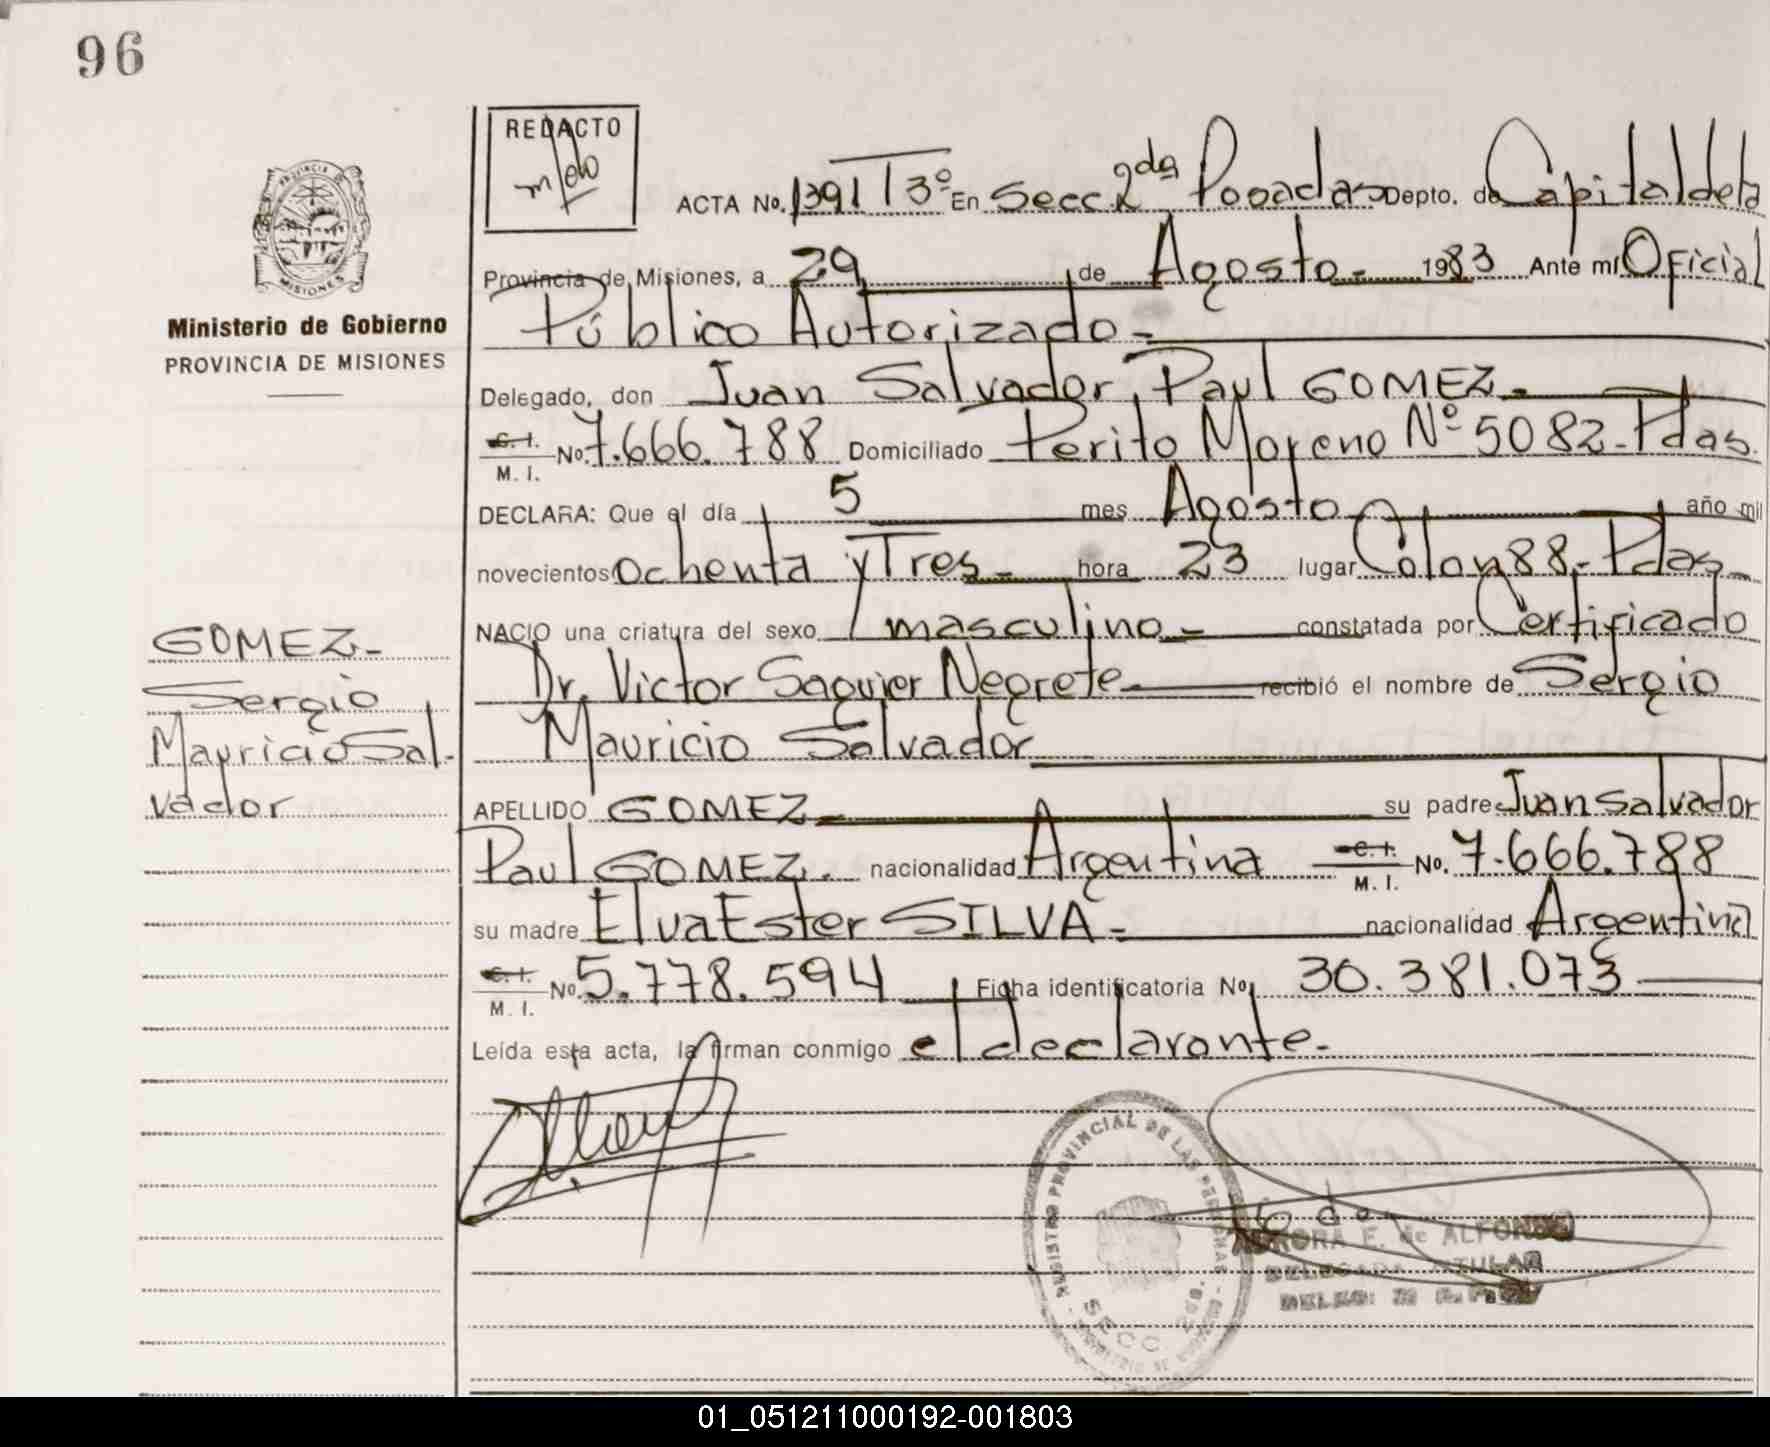 96
REDACTO
ACTA No. 1391 T 3º En Secc. 2da Posadas Depto. de Capital de la
Provincia de Misiones, a 29 de Agosto.- 1983 Ante mí Oficial
Público Autorizado.-
Delegado, don Juan Salvador Paul GOMEZ.-
C. I.
M. I. No. 7.666.788 Domiciliado Perito Moreno Nº 5082.-Pdas.
DECLARA: Que el día 5 mes Agosto año mil
novecientos ochenta y Tres.- hora 23 lugar Colon 88.- Pdas.-
NACIO una criatura del sexo masculino.- constatada por Certificado
Dr. Victor Saguier Negrete.- recibió el nombre de Sergio
Mauricio Salvador
APELLIDO GOMEZ.- su padre Juan Salvador
Paul GOMEZ. nacionalidad Argentina C. I.
M. I. No. 7.666.788
su madre Elva Ester SILVA.- nacionalidad Argentina
C. I.
M. I. No. 5.778.594 Ficha identificatoria No. 30.381.073
Leída esta acta, la firman conmigo el declarante.-
PROVINCIA DE
MISIONES
Ministerio de Gobierno
PROVINCIA DE MISIONES
GOMEZ.-
Sergio
Mauricio Sal-
vador
REGISTRO PROVINCIAL DE LAS PERSONAS
SECC 2da.
AURORA E. de ALFONSO
DELEGADA TITULAR
01_051211000192-001803